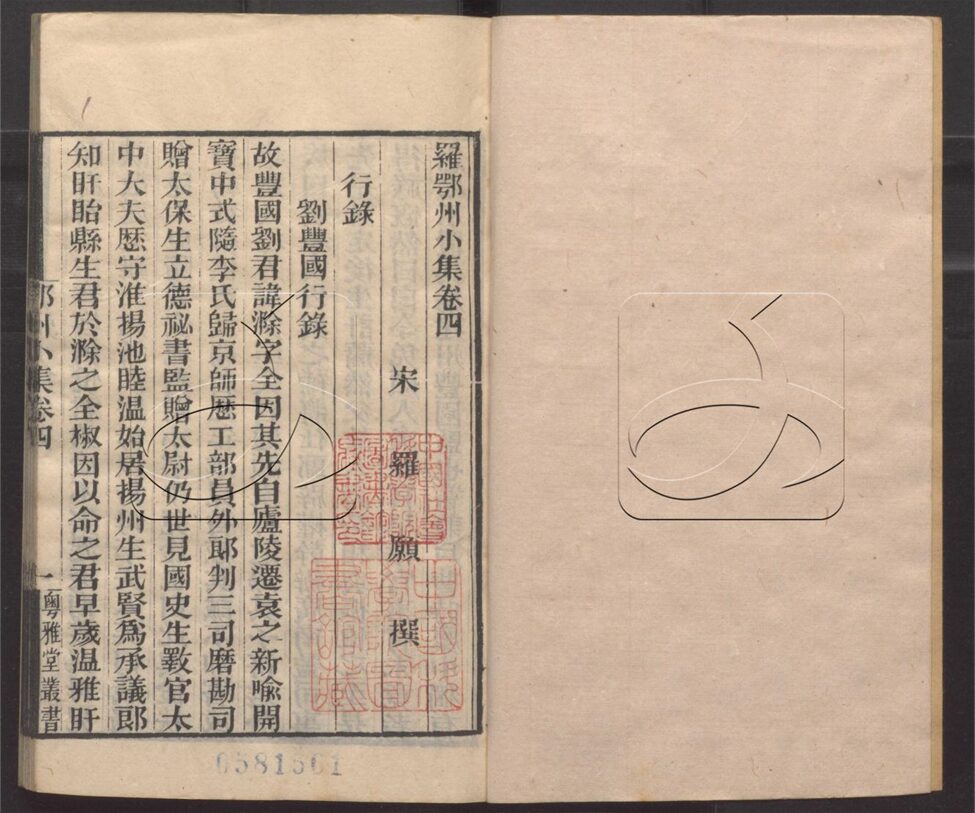 羅鄂州小集卷四
宋 羅 願 撰
行錄
劉豐國行錄
故豐國劉君諱滁字全因其先自廬陵遷袁之新喻開
寶中式隨李氏歸京師歷工部員外郎判三司磨勘司
贈太保生立德祕書監贈太尉仍世見國史生斁官太
中大夫歷守淮揚池睦温始居揚州生武賢爲承議郎
知盱眙縣生君於滁之全椒因以命之君早歲温雅盱
鄂州小集卷四 一 粵雅堂叢書
0581561